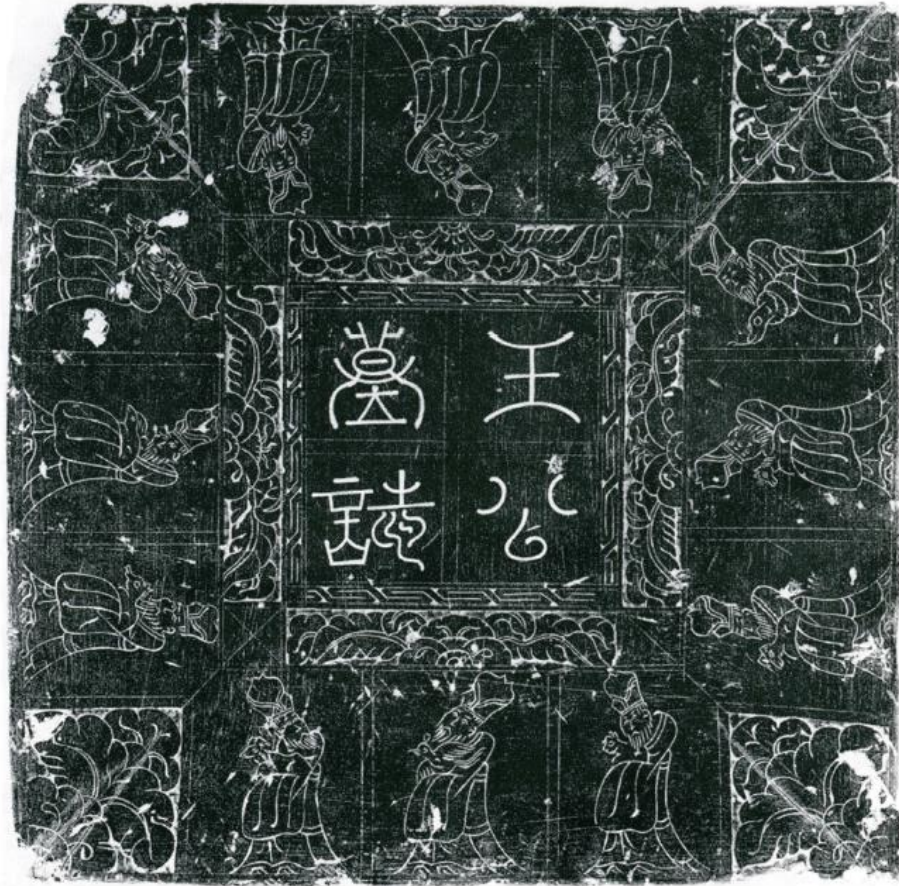 王公
墓誌